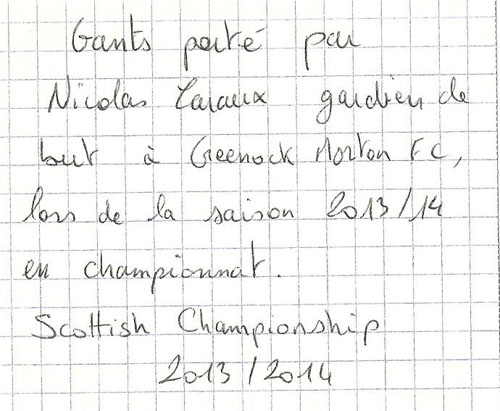 Gants porté par
Nicolas Caraux gardien de
but à Greenock Morton FC,
lors de la saison 2013/14
en championnat.
Scottish Championship
2013/2014